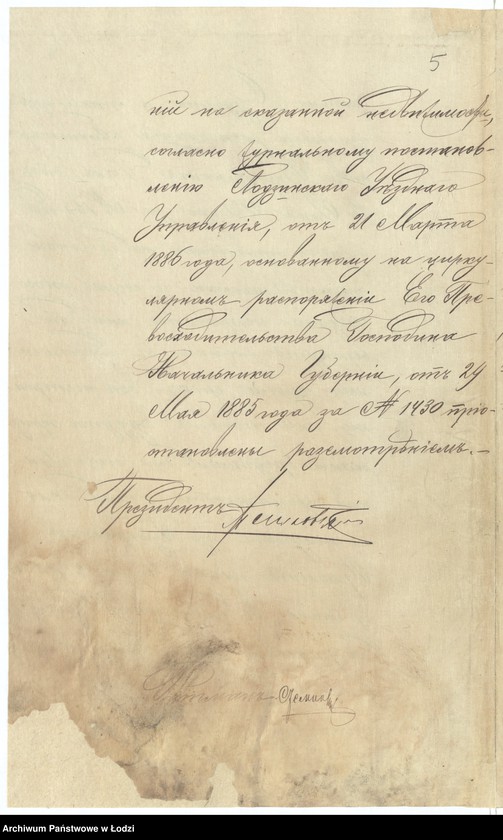 5
ній на сказанной недвижимости,
согласно журнальному постанов-
ленію Лодзинскаго Уѣзднаго
Управленія, отъ 21 Марта
1886 года, основанному на цирку-
лярномъ распоряженіи Его Пре-
восходительства Господина
Начальника Губерніи, отъ 24
Мая 1885 года за № 1430 пріо-
становлены разсмотрѣніемъ.-
Президентъ
Archiwum Państwowe w Łodzi